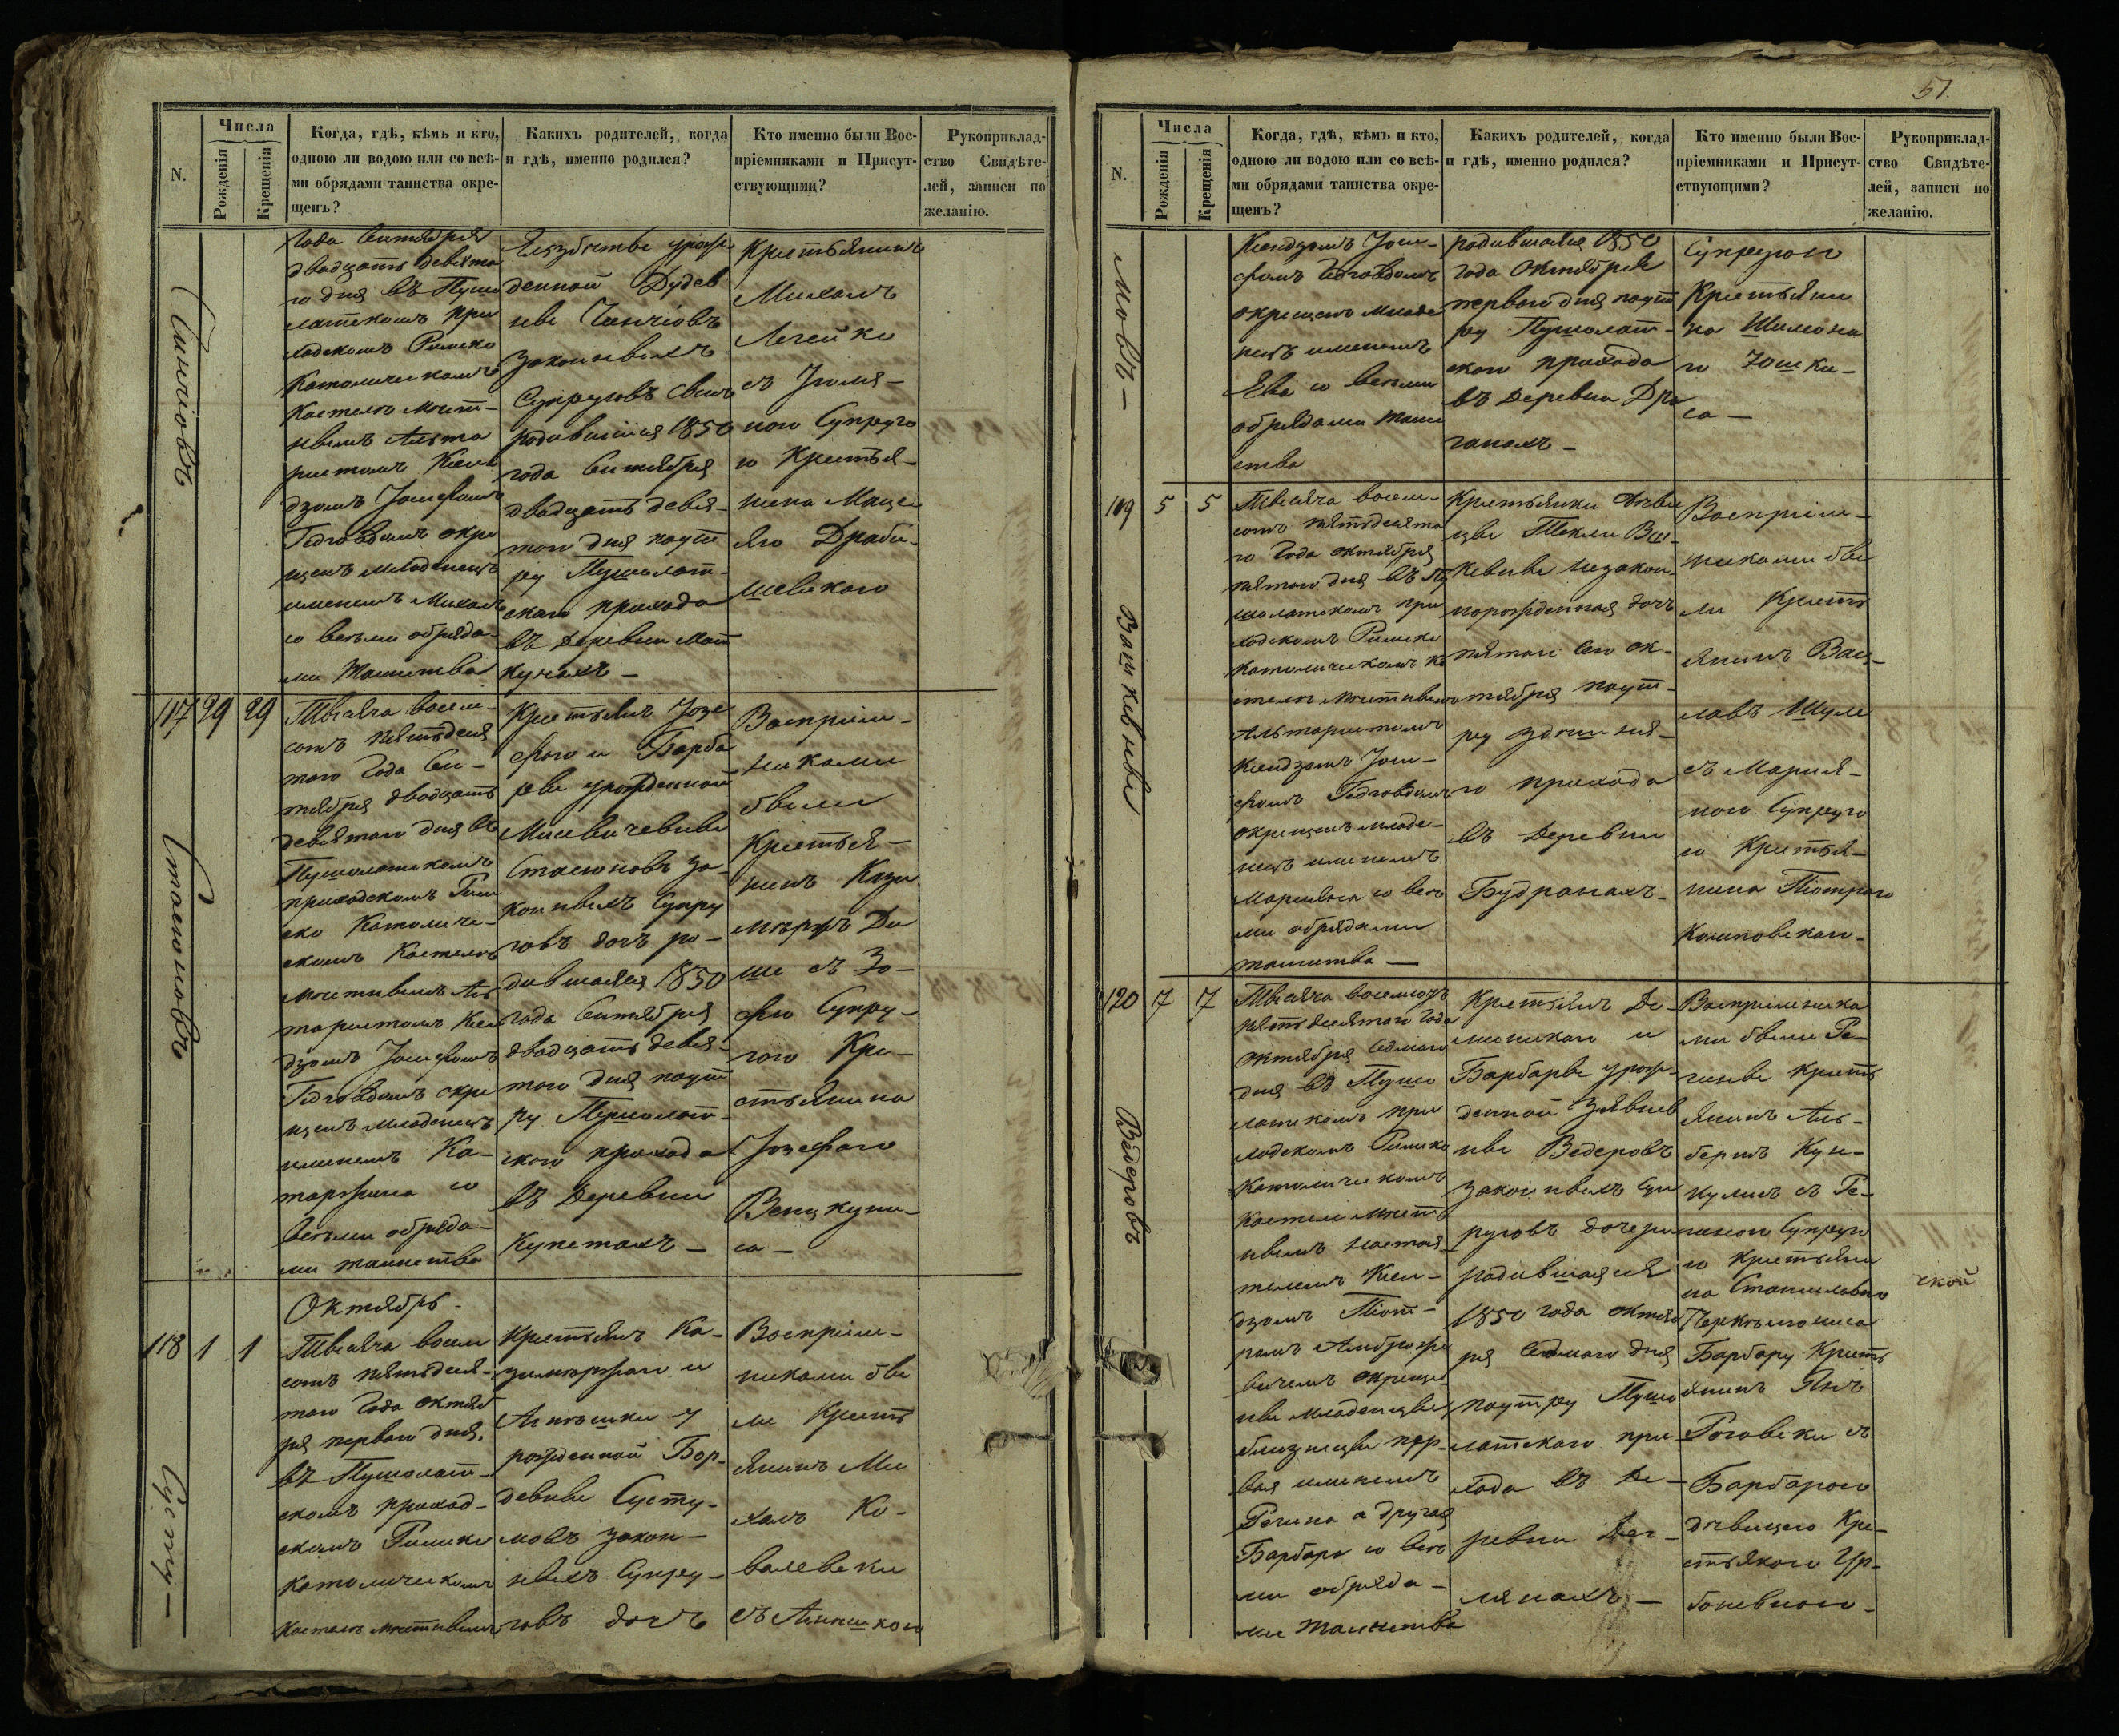 51.
N.
Числа
Рожденія
Крещенія
Когда, гдѣ, кѣмъ и кто,
одною ли водою или со всѣ-
ми обрядами таинства окре-
щенъ?
Какихъ родителей, когда
и гдѣ, именно родился?
Кто именно были Вос-
пріемниками и Присут-
ствующими?
Рукоприклад-
ство Свидѣте-
лей, записи по
желанію.
года Сентября
двадцать девята
го дня въ Пушо
латскомъ при
ходскомъ Римско
Католическомъ
Костелѣ мѣст-
нымъ Альта
ристомъ Ксен
дзомъ Іосифомъ
Гедговдомъ окре
щенъ младенецъ
именемъ Михалъ
со всѣми обряда-
ми Таинства
Елзубѣты урож
денной Дудев
ны
законныхъ
Супруговъ сынъ
родившійся 1850
года Сентября
двадцать девя-
того дня поут
ру Пушолат-
скаго прихода
въ Деревни Мат
кунахъ -
Крестьянинъ
Михалъ
с
ною Супруго
ю Крестья-
нина Мацея
117 29 29
Тысяча восем-
сотъ пятьдеся
того Года Сен-
тября двадцать
девятаго дня въ
Пушолатскомъ
приходскомъ Рим
ско Католиче-
скомъ Костелѣ
мѣстнымъ Аль
таристомъ Ксен
дзомъ Іосифомъ
Гедговдомъ окре
щенъ младенецъ
именемъ Ка-
таржина со
всѣми обряда-
ми таинства
Крестьянъ Юзе
фого и Барба
ры урожденной
Мисевичевны
Стасюновъ за-
конныхъ Супру
говъ дочь ро-
дившаяся 1850
года Сентября
двадцать девя-
того дня поут
ру Пушолат-
ского прихода
въ Деревни
Купетахъ -
Воспріем-
никами
были
Крестья-
нинъ Кази
міръ
съ Зо-
фіею Супру-
гою Кре-
стьянина
Юзефаго
са -
Стасюновъ
Октябрь.
118 1 1
Тысяча восем
сотъ пятьдеся-
того Года октяб
ря первого дня.
въ Пушолат-
скомъ приход-
скомъ Римско
католическомъ
Костелѣ мѣстнымъ
Крестьянъ Ка-
зимѣржаго и
Агнѣшки у
рожденной Бор-
девны Сусту-
мовъ закон-
ныхъ Супру-
говъ дочь
Воспріем-
никами бы
ли Кресть
янинъ Ми
халъ Ко-
валевски
съ
Сусту-
N.
Числа
Рожденія
Крещенія
Когда, гдѣ, кѣмъ и кто,
одною ли водою или со всѣ-
ми обрядами таинства окре-
щенъ?
Какихъ родителей, когда
и гдѣ, именно родился?
Кто именно были Вос-
пріемниками и Присут-
ствующими?
Рукоприклад-
ство Свидѣте-
лей, записи по
желанію.
мовъ -
Ксендзомъ Іоси-
фомъ Гедговдомъ
окрещенъ младе
нецъ именемъ
Ева со всѣми
обрядами таин
ства
родившаяся 1850
года Октября
первого дня поут
ру Пушолат-
ского прихода
въ Деревни Дра
ганахъ -
Супругою
Крестьяни
на Шимона
го Юшке-
са -
119 5 5
Тысяча восем-
сотъ пятьдесята
го Года октября
пятого дня въ Пу
шолатскомъ при
ходскомъ Римско
Католическомъ Ко
стелѣ мѣстнымъ
Альтаристомъ
Ксендзомъ Іоси-
фомъ Гедговдомъ
окрещенъ младе-
нецъ именемъ
Марцяна со всѣ
ми обрядами
таинства -
Крестьянки Дѣви
цы Текли Ваш-
кевны незакон
норожденная дочь
пятого сего ок-
тября поут-
ру
го прихода
въ Деревни
Будранахъ -
Воспріем-
никами бы
ли Кресть
янинъ Вац-
лавъ Шуле
съ Марія-
ною Супруго
ю Крестья-
нина Піотраго
Вашкевны
120 7 7
Тысяча восемсотъ
пятьдесятого Года
октября седмаго
дня въ Пушо
латскомъ при
ходскомъ Римско
Католическомъ
Костелѣ мѣст
нымъ Настоя-
телемъ Ксен-
дзомъ Піот-
ромъ Амброже
вичемъ окреще
ны младенцы
близнецы пер-
вая именемъ
Регина а другая
Барбара со всѣ
ми обряда-
ми таинства
Крестьянъ До-
миникаго и
Барбары урож-
денной
ны Ведеровъ
законныхъ Суп
руговъ дочери
родившаяся
1850 года октяб
ря седмаго дня
поутру Пушо
латскаго при-
хода въ Де-
ревни Дег-
лянахъ -
Воспріемника
ми были Ре-
гины Кресть
янинъ Аль-
бертъ Кун-
кулисъ съ Ре-
гиною Супруго
ю Крестьяни
на Станиславаго
Барбару Кресть
янинъ Янъ
Роговски съ
Барбарою
дѣвицею Кре-
стьякою
ской
Ведеровъ